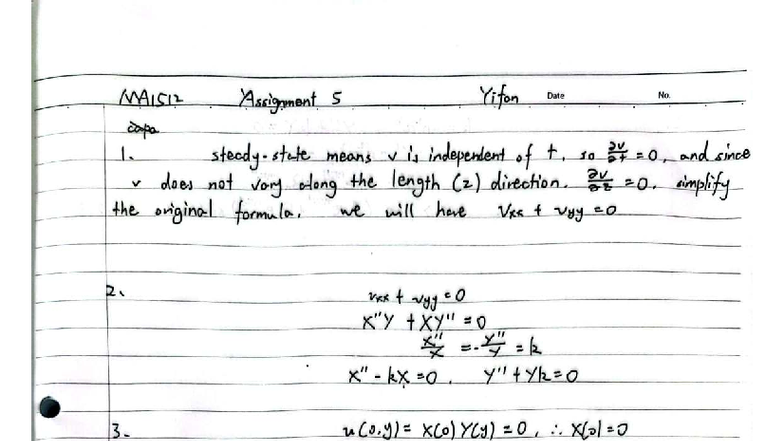 MA1512 Assignment 5 Yifan Date No.
1. steady-state means v is independent of t, so ∂v/∂t = 0, and since
v does not vary along the length (z) direction. ∂v/∂z = 0. simplify
the original formula. we will have Vxx + Vyy = 0
2. Vxx + Vyy = 0
X''Y + XY'' = 0
X''/X = -Y''/Y = k
X'' - kX = 0, Y'' + Yk = 0
3. u(0,y) = X(0)Y(y) = 0, ∴ X(0) = 0